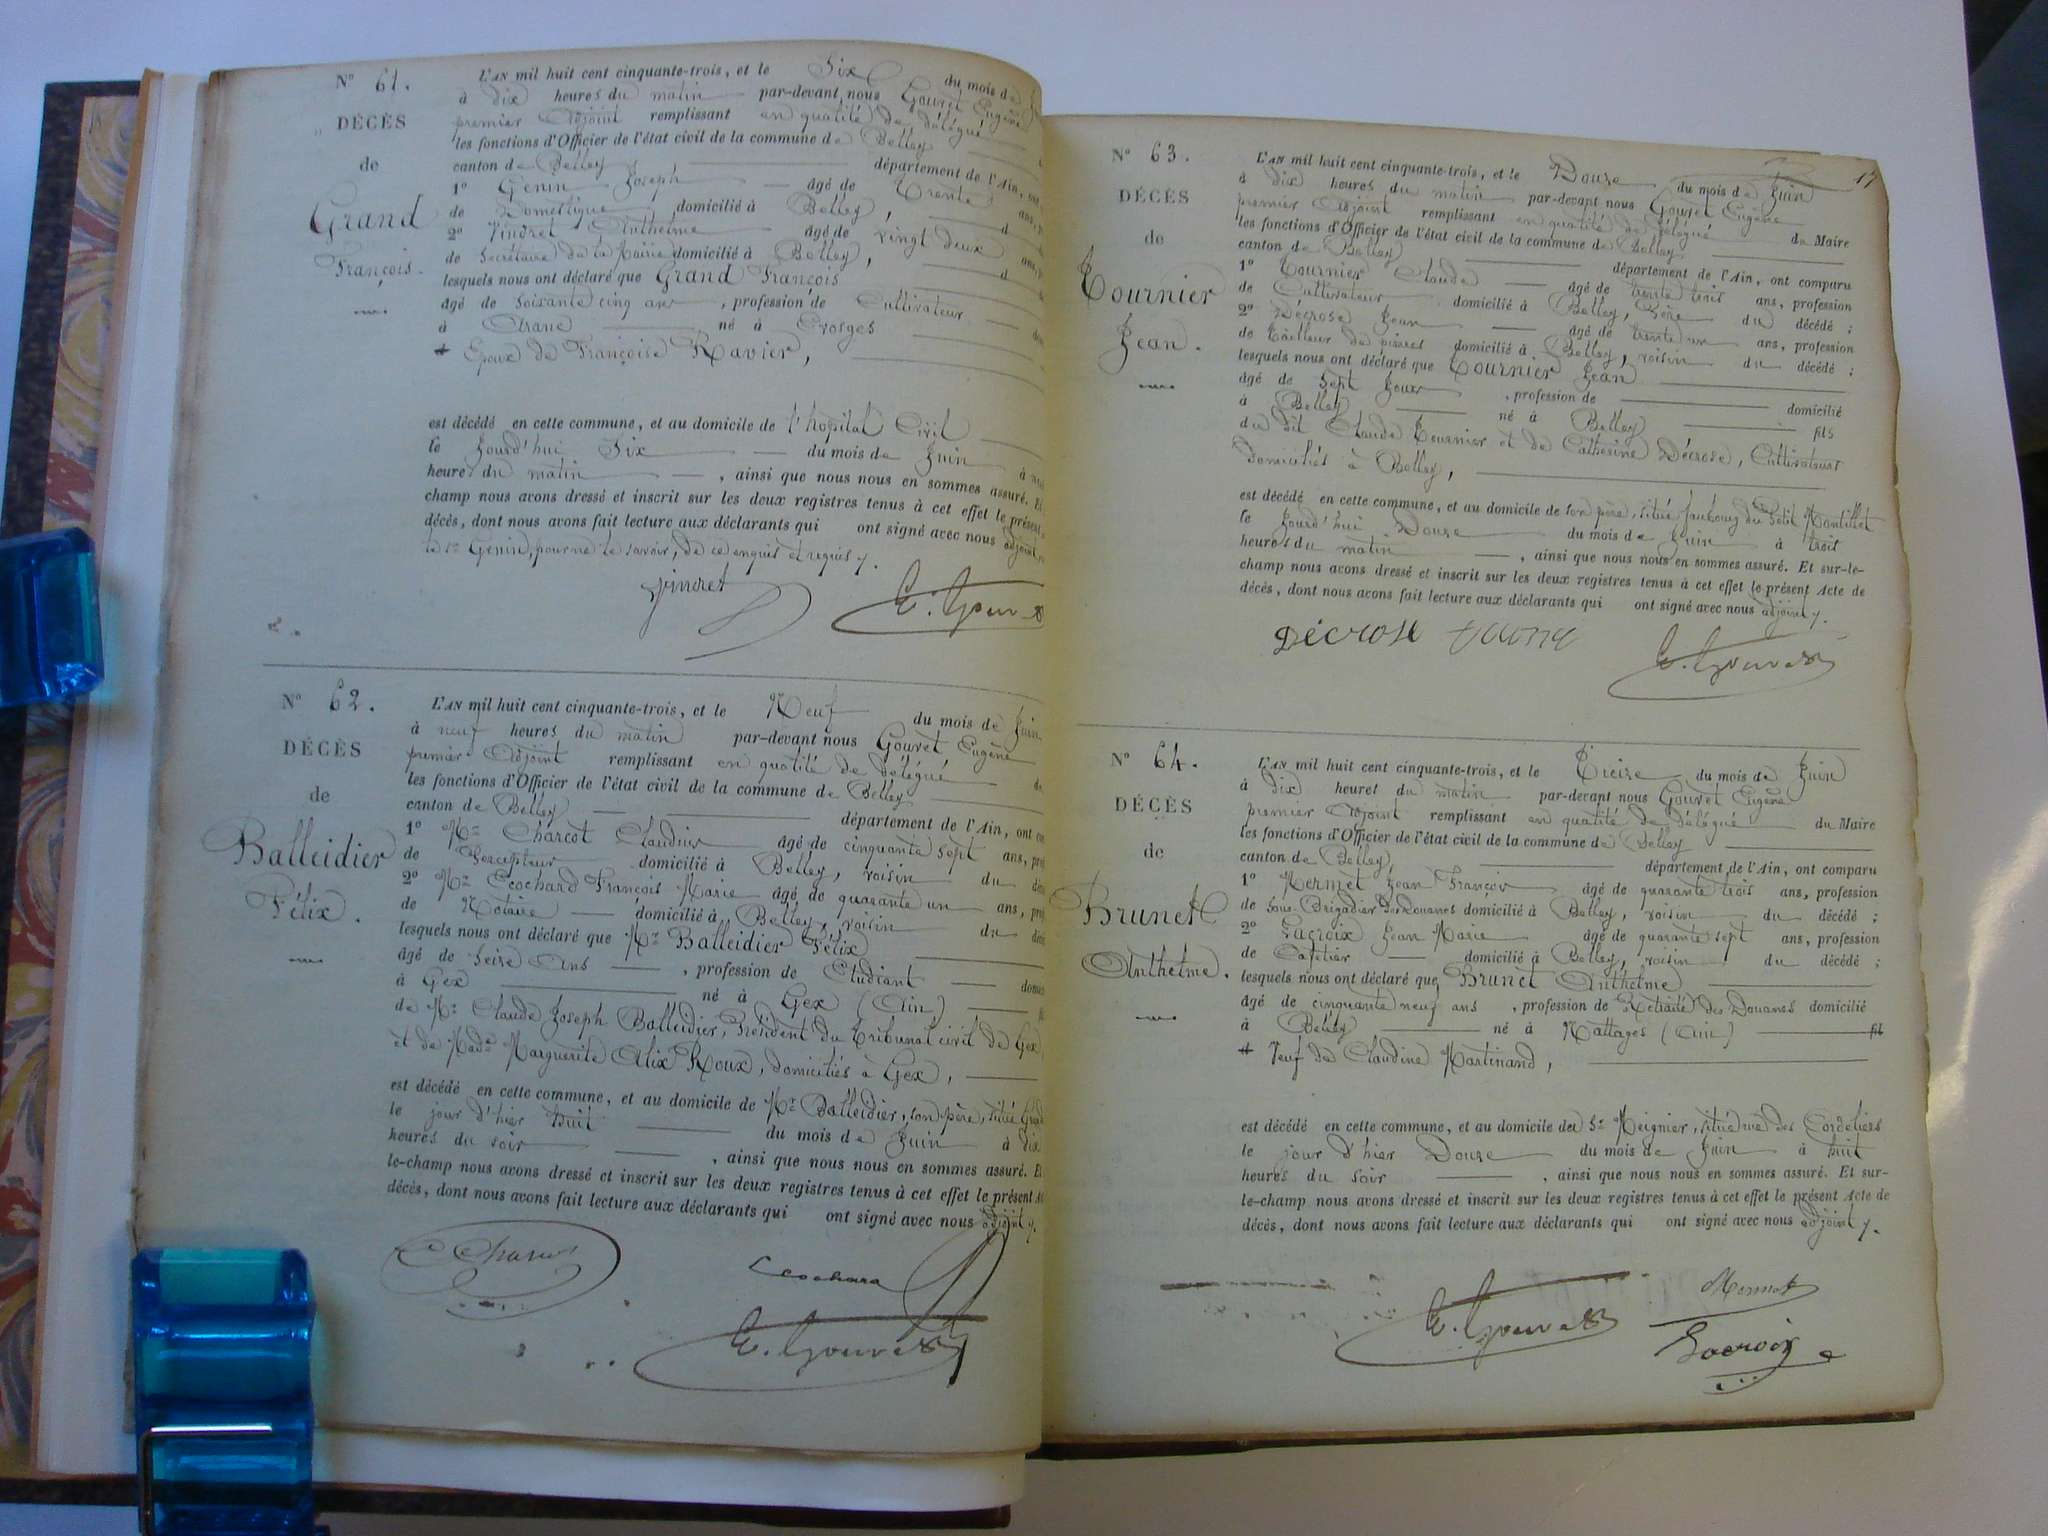 N° 61.
DÉCÈS
de
Grand
François.
L'AN mil huit cent cinquante-trois, et le Six du mois de
à dix heures du matin par-devant nous Gouvet Eugène
premier Adjoint remplissant en qualité de délégué
les fonctions d'Officier de l'état civil de la commune de Belley
canton de Belley département de l'Ain,
1° Genin Joseph âgé de Trente ans,
de Domestique domicilié à Belley,
2° Vindret Anthelme âgé de vingt deux ans,
de Secrétaire de la Mairie domicilié à Belley,
lesquels nous ont déclaré que Grand François
âgé de Soixante cinq ans, profession de Cultivateur
à né à
Epoux de Françoise Ravier,
est décédé en cette commune, et au domicile de l'hopital Civil
le Jourd'hui Six du mois de Juin à
heures du matin, ainsi que nous nous en sommes assuré. Et
champ nous avons dressé et inscrit sur les deux registres tenus à cet effet le présent
décès, dont nous avons fait lecture aux déclarants qui ont signé avec nous adjoint,
le sr Genin, pour ne le savoir, de ce enquis et requis.
Vindret E. Gouvet
N° 62.
DÉCÈS
de
Balleidier
Félix.
L'AN mil huit cent cinquante-trois, et le Neuf du mois de Juin
à neuf heures du matin par-devant nous Gouvet Eugène
premier Adjoint remplissant en qualité de délégué
les fonctions d'Officier de l'état civil de la commune de Belley
canton de Belley département de l'Ain, ont
1° Mr Charcot Claudius âgé de cinquante sept ans,
de Percepteur domicilié à Belley, voisin du
2° Mr Ecochard François Marie âgé de quarante un ans,
de Notaire domicilié à Belley, voisin du
lesquels nous ont déclaré que Mr Balleidier Félix
âgé de Seize Ans, profession de Etudiant
à Gex né à Gex (Ain)
de Mr Claude Joseph Balleidier, Président du Tribunal civil de Gex
et de Made Marguerite Alix Roux, domiciliés à Gex,
est décédé en cette commune, et au domicile de Mr Balleidier, son père, située
le jour d'hier huit du mois de Juin à
heures du soir, ainsi que nous nous en sommes assuré. Et
le-champ nous avons dressé et inscrit sur les deux registres tenus à cet effet le présent
décès, dont nous avons fait lecture aux déclarants qui ont signé avec nous adjoint.
Ecochard
E. Gouvet
17
N° 63.
DÉCÈS
de
Tournier
Jean.
L'AN mil huit cent cinquante-trois, et le Douze du mois de Juin
à dix heures du matin par-devant nous Gouvet Eugène
premier Adjoint remplissant en qualité de délégué du Maire
les fonctions d'Officier de l'état civil de la commune de Belley
canton de Belley département de l'Ain, ont comparu
1° Tournier Claude âgé de trente trois ans, profession
de Cultivateur domicilié à Belley, Père du décédé ;
2° Décrose Jean âgé de trente un ans, profession
de Tailleur de pierres domicilié à Belley, voisin du décédé ;
lesquels nous ont déclaré que Tournier Jean
âgé de Sept Jours, profession de domicilié
à Belley né à Belley fils
du dit Claude Tournier et de Catherine Décrose, Cultivateurs
domiciliés à Belley,
est décédé en cette commune, et au domicile de son père, situé faubourg du Petit Montillet
le Jourd'hui Douze du mois de Juin à trois
heures du matin, ainsi que nous nous en sommes assuré. Et sur-le-
champ nous avons dressé et inscrit sur les deux registres tenus à cet effet le présent Acte de
décès, dont nous avons fait lecture aux déclarants qui ont signé avec nous adjoint.
DÉCROSE
E. Gouvet
N° 64.
DÉCÈS
de
Brunet
Anthelme.
L'AN mil huit cent cinquante-trois, et le Treize du mois de Juin
à dix heures du matin par-devant nous Gouvet Eugène
premier Adjoint remplissant en qualité de délégué du Maire
les fonctions d'Officier de l'état civil de la commune de Belley
canton de Belley département de l'Ain, ont comparu
1° Mermet Jean François âgé de quarante trois ans, profession
de Sous-Brigadier des Douanes domicilié à Belley, voisin du décédé ;
2° Lacroix Jean Marie âgé de quarante sept ans, profession
de Cafetier domicilié à Belley, voisin du décédé ;
lesquels nous ont déclaré que Brunet Anthelme
âgé de cinquante neuf ans, profession de Retraité des Douanes domicilié
à Belley né à Nattages (Ain) fils
Veuf de Claudine Martinand,
est décédé en cette commune, et au domicile du Sr Meignier, situé rue des Cordeliers
le jour d'hier Douze du mois de Juin à huit
heures du soir, ainsi que nous nous en sommes assuré. Et sur-
le-champ nous avons dressé et inscrit sur les deux registres tenus à cet effet le présent Acte de
décès, dont nous avons fait lecture aux déclarants qui ont signé avec nous adjoint.
Mermet
E. Gouvet
Lacroix